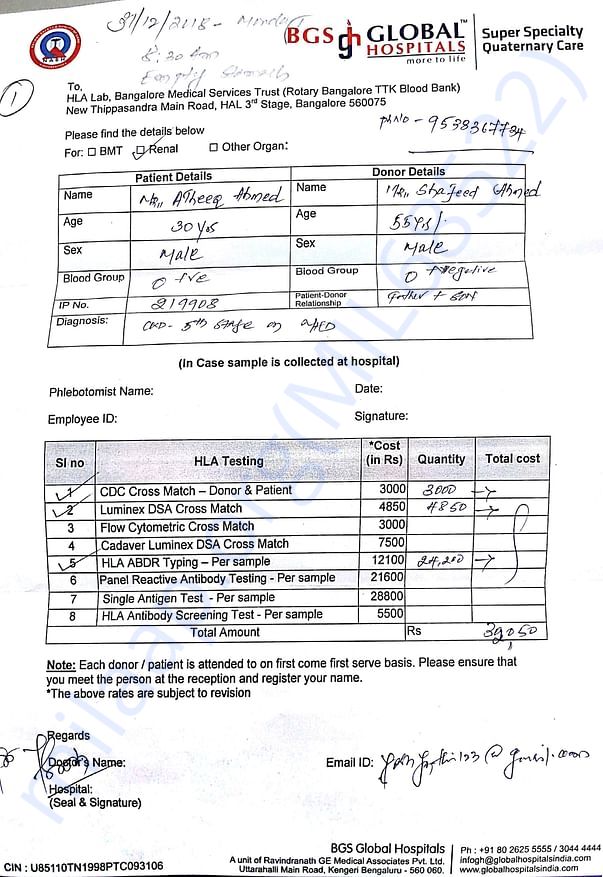 31/12/2018 - Monday
8.30 Am
Empty Stomach
NABH
BGS GLOBAL HOSPITALS™
more to life
Super Specialty
Quaternary Care
1
To,
HLA Lab, Bangalore Medical Services Trust (Rotary Bangalore TTK Blood Bank)
New Thippasandra Main Road, HAL 3rd Stage, Bangalore 560075
Please find the details below
ph no - 9538367734
For: BMT Renal Other Organ:
Patient Details Donor Details
Name Mr,, ATheeq Ahmed Name Mr,, Shafeed Ahmed
Age 30 Yrs Age 55 Yrs/-
Sex Male Sex Male
Blood Group O +ve Blood Group O +Negative
IP No. 219908 Patient-Donor Relationship Father + Son
Diagnosis: CKD - 5th Stage on
(In Case sample is collected at hospital)
Phlebotomist Name: Date:
Employee ID: Signature:
Sl no HLA Testing *Cost (in Rs) Quantity Total cost
1 CDC Cross Match – Donor & Patient 3000 3000
2 Luminex DSA Cross Match 4850 4850
3 Flow Cytometric Cross Match 3000
4 Cadaver Luminex DSA Cross Match 7500
5 HLA ABDR Typing – Per sample 12100 24,200
6 Panel Reactive Antibody Testing - Per sample 21600
7 Single Antigen Test - Per sample 28800
8 HLA Antibody Screening Test - Per sample 5500
Total Amount Rs 32050
Note: Each donor / patient is attended to on first come first serve basis. Please ensure that
you meet the person at the reception and register your name.
*The above rates are subject to revision
Regards
Doctor's Name:
Email ID: @gmail.com
Hospital:
(Seal & Signature)
BGS Global Hospitals
A unit of Ravindranath GE Medical Associates Pvt. Ltd.
Uttarahalli Main Road, Kengeri Bengaluru - 560 060.
Ph : +91 80 2625 5555 / 3044 4444
infogh@globalhospitalsindia.com
www.globalhospitalsindia.com
CIN : U85110TN1998PTC093106